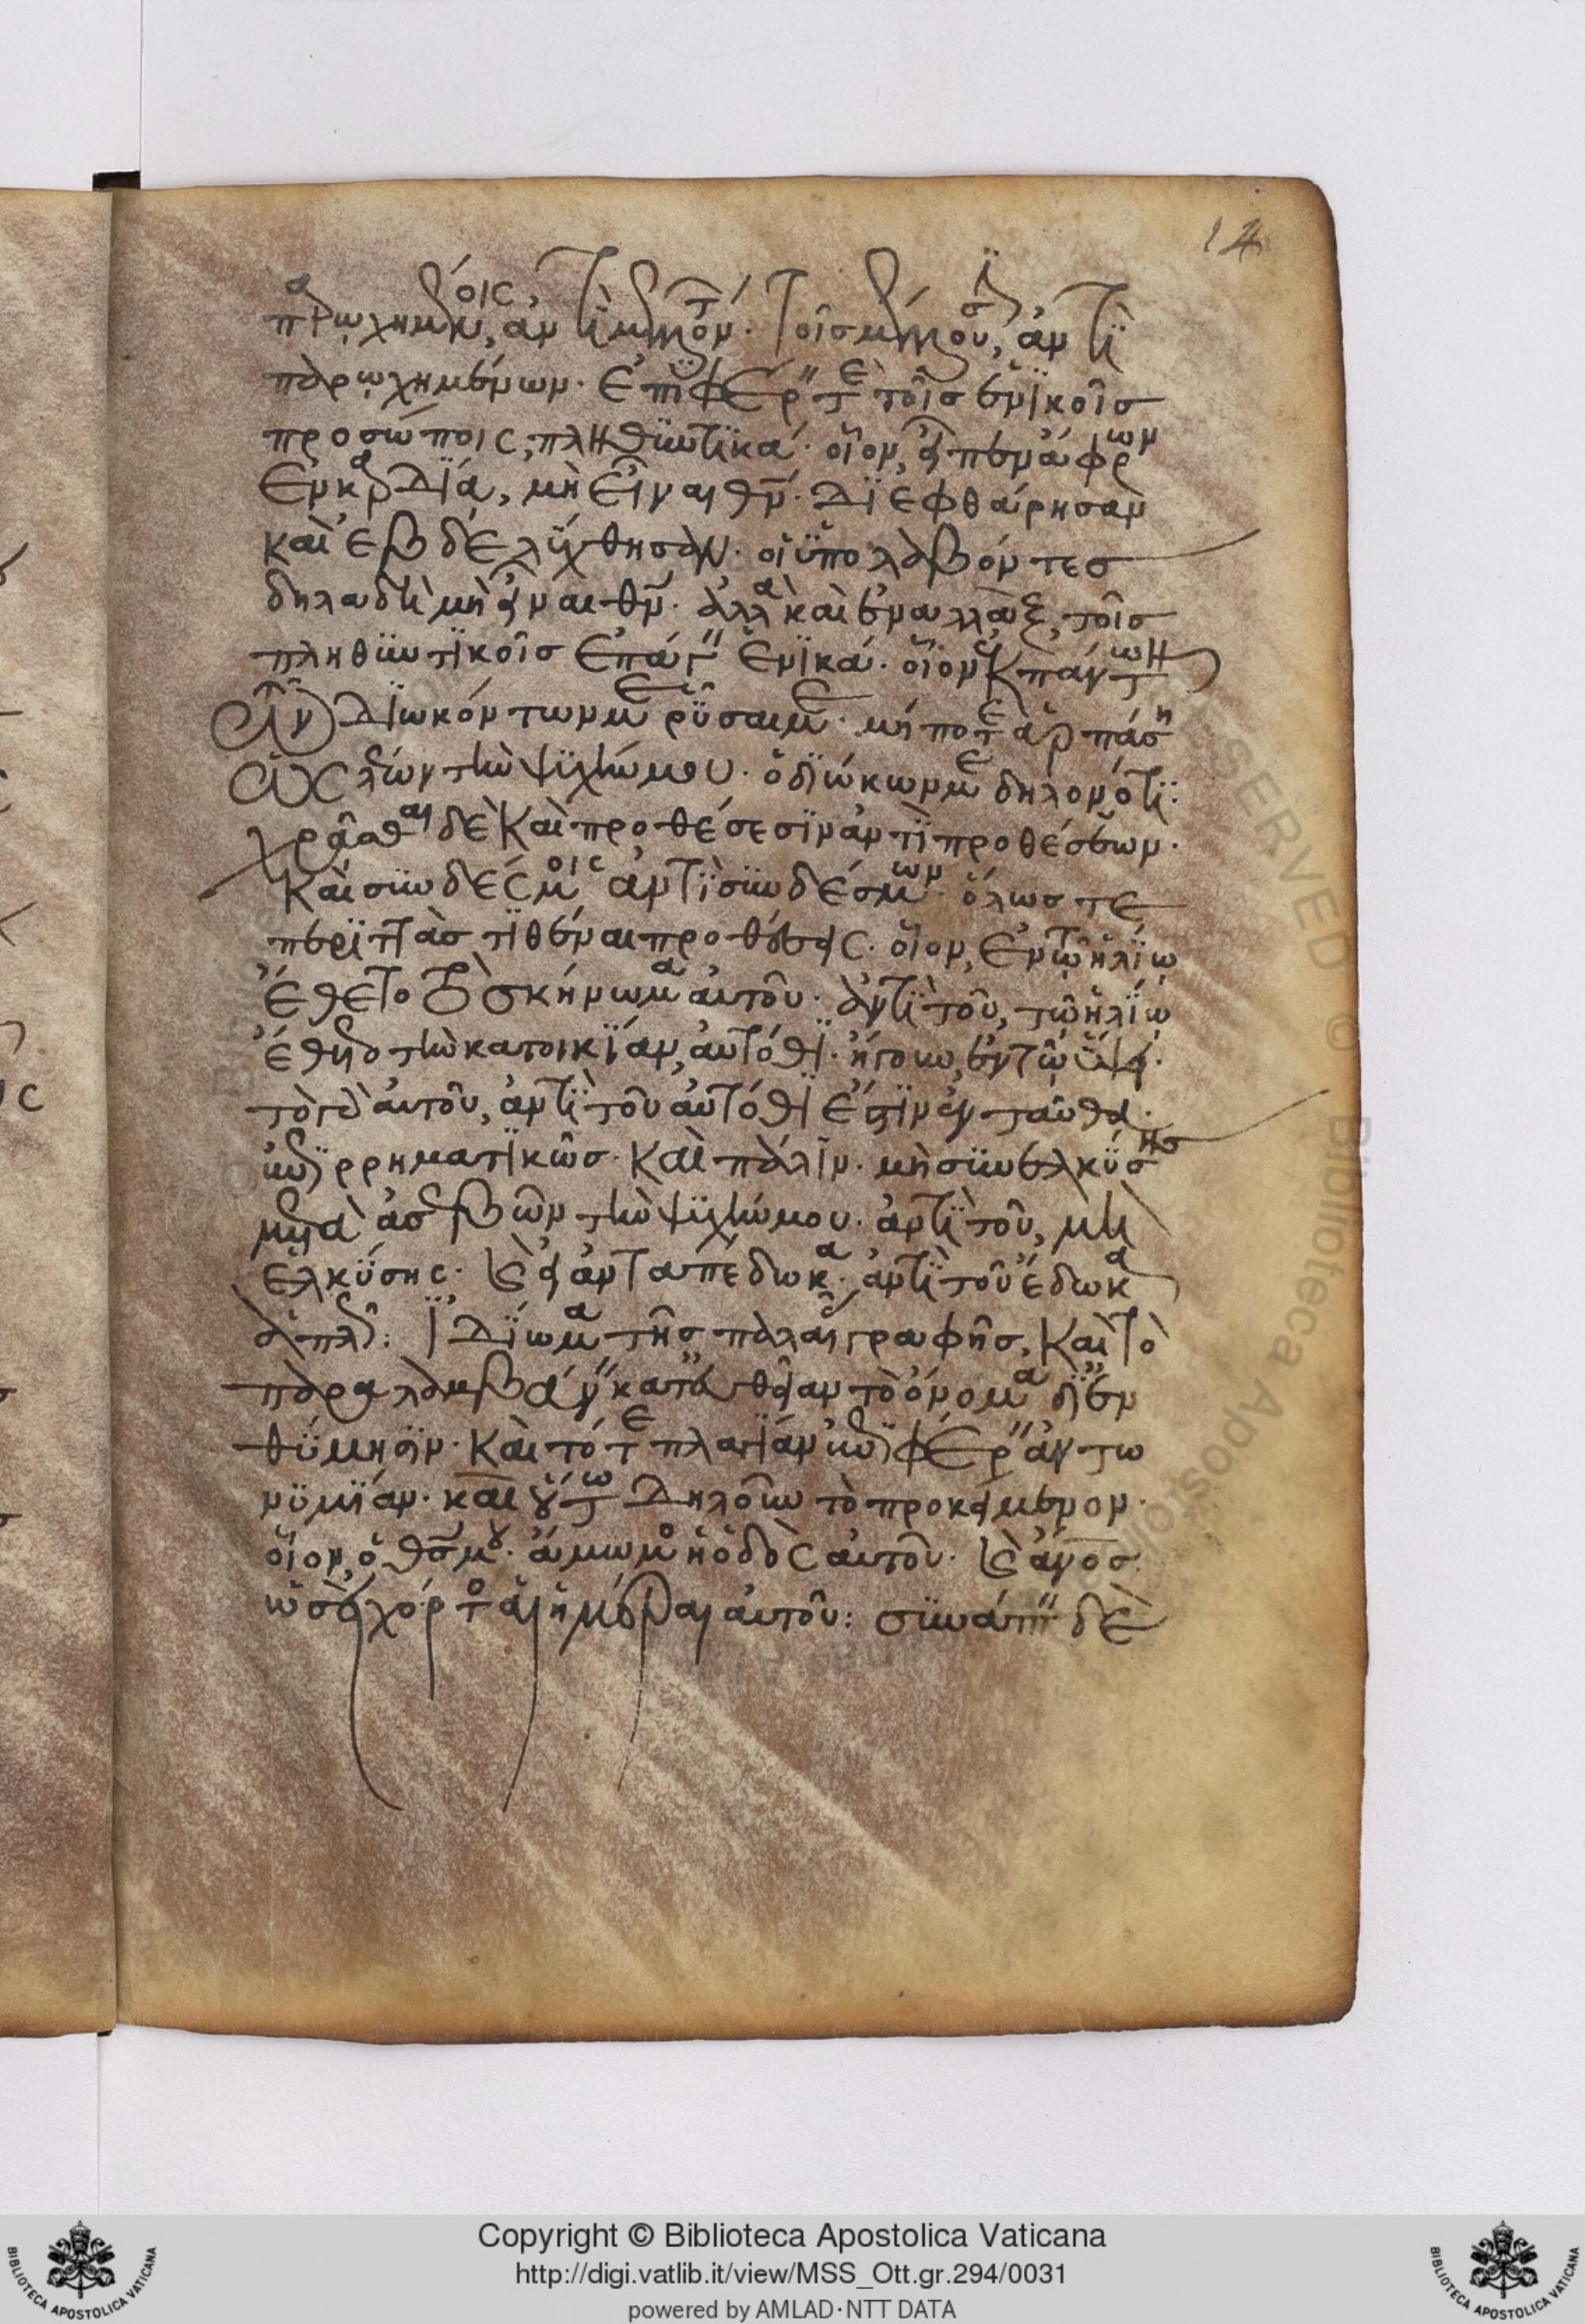 14
παρῳχημένοις, ἀντὶ μελλόντων· τοῖς μέλλουσι, ἀντὶ
παρῳχημένων· ἐπιφέρει τε τοῖς ἑνικοῖς
προσώποις, πληθυντικά· οἷον, εἶπεν ἄφρων
ἐν καρδίᾳ, μὴ εἶναι θν· διεφθάρησαν
καὶ ἐβδελύχθησαν· οἱ ὑπολαβόντες
δηλαδὴ μὴ εἶναι θν· ἀλλὰ καὶ ἐναλλὰξ, τοῖς
πληθυντικοῖς ἐπάγει ἑνικά· οἷον ἐκ πάντων
τῶν διωκόντων με ῥῦσαί με· μή ποτε ἁρπάσῃ
ὡς λέων τὴν ψυχήν μου· ὁ διώκων με δηλονότι:
χρᾶσθαι δὲ καὶ προθέσεσιν ἀντὶ προθέσεων·
καὶ συνδέσμοις ἀντὶ συνδέσμων· ὅλως τε
περιττὰς τιθέναι προθέσεις· οἷον, ἐν τῷ ἡλίῳ
ἔθετο τὸ σκήνωμα αὐτοῦ· ἀντὶ τοῦ, τῷ ἡλίῳ
ἔθετο τὴν κατοικίαν, αὐτόθι· ἤγουν, ἐν τῷ
τὸ γὰρ αὐτοῦ, ἀντὶ τοῦ αὐτόθι ἐστὶν ἐνταῦθα·
ἐπιρρηματικῶς· καὶ πάλιν· μὴ συνελκύσῃς
μετὰ ἀσεβῶν τὴν ψυχήν μου· ἀντὶ τοῦ, μὴ
ἑλκύσῃς· καὶ εἰ ἀνταπέδωκα· ἀντὶ τοῦ ἔδωκα
ἁπλῶς: ἰδίωμα τῆς παλαιᾶς γραφῆς, καὶ τὸ
παραλαμβάνειν κατʼ εὐθεῖαν τὸ ὄνομα
θύμησιν· καὶ τότε πλαγίαν ἐπιφέρειν ἀντω
νυμίαν· καὶ οὕτω δηλοῦν τὸ προκείμενον·
οἷον, ὁ θς μου· ἄμωμος ἡ ὁδὸς αὐτοῦ· καὶ ἄνος
ὡσεὶ χόρτος αἱ ἡμέραι αὐτοῦ: συνάπτει δὲ
Copyright © Biblioteca Apostolica Vaticana
http://digi.vatlib.it/view/MSS_Ott.gr.294/0031
powered by AMLAD·NTT DATA
BIBLIOTECA APOSTOLICA VATICANA
BIBLIOTECA APOSTOLICA VATICANA